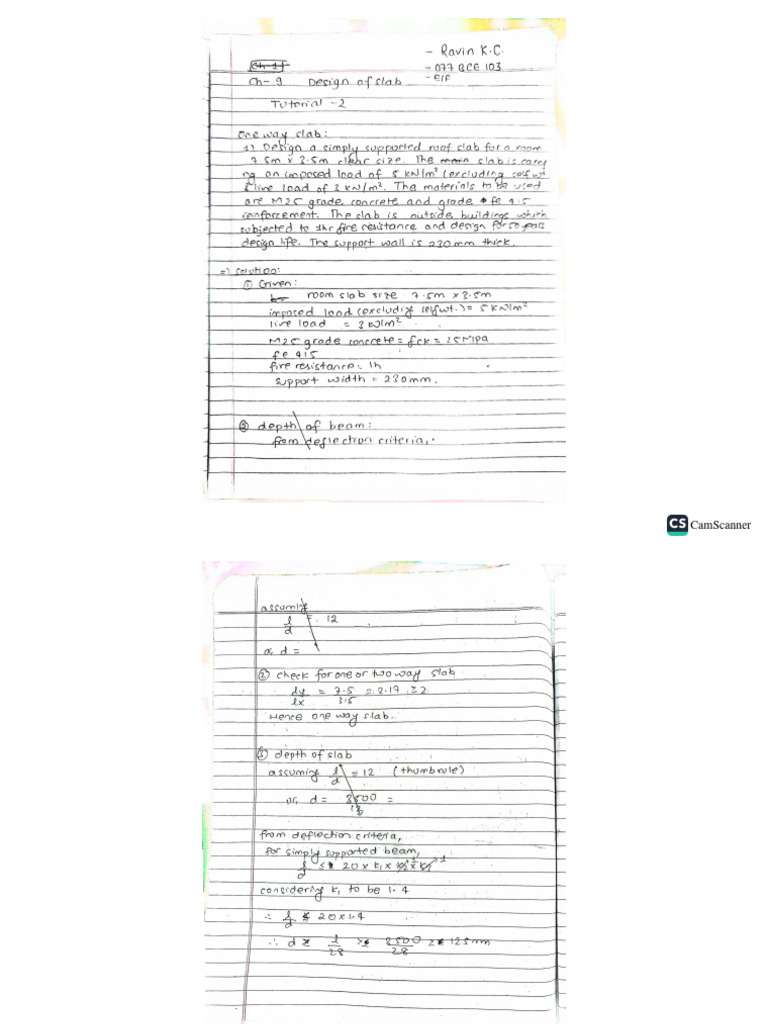 - Ravin K.C.
- 077 BCE 103
- E/F
Ch-1
Ch-9 Design of slab
Tutorial -2
One way slab:
1) Design a simply supported roof slab for a room
7.5m x 3.5m clear size. The slab is carry
ng an imposed load of 5 kN/m² (excluding self wt
& live load of 3 kN/m². The materials to be used
are M25 grade concrete and grade fe 415
reinforcement. The slab is outside buildings which
subjected to 1hr fire resistance and design for 50 years
design life. The support wall is 230mm thick.
=) Solution:
① Given:
room slab size 7.5m x 3.5m
imposed load (excluding self wt.) = 5 kN/m²
live load = 3 kN/m²
M25 grade concrete = fck = 25 MPa
fe 415
fire resistance = 1h
support width = 230mm.
② depth of beam:
from deflection criteria,
assuming
l/d = 12
or, d =
② Check for one or two way slab
ly/lx = 7.5/3.5 = 2.17 ≥ 2
Hence one way slab.
③ depth of slab
assuming l/d = 12 (thumbrule)
or, d = 3500/12 =
from deflection criteria,
for simply supported beam,
l/d ≤ 20 x k₁ x
considering k₁ to be 1.4
∴ l/d ≤ 20 x 1.4
∴ d ≥ l/28 ≥ 3500/28 ≥ 125mm
CS CamScanner